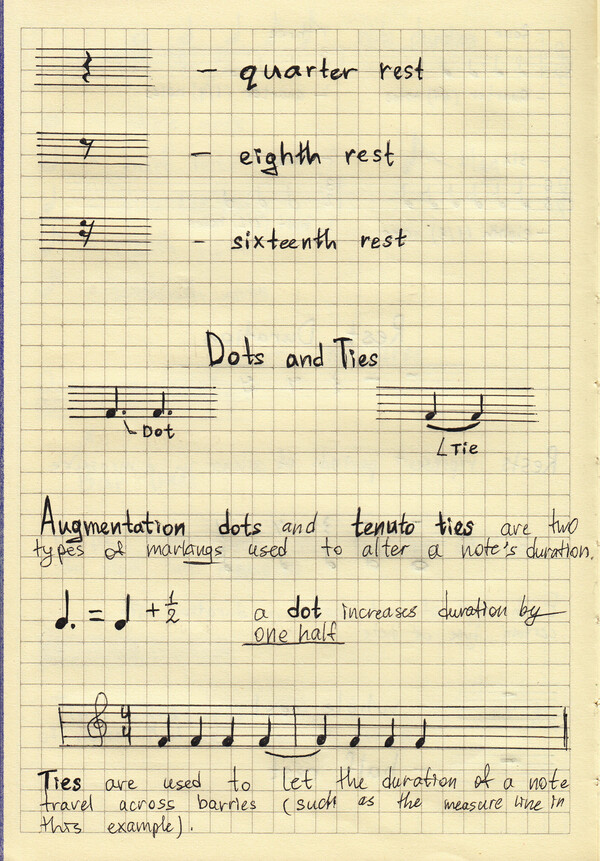 - quarter rest
- eighth rest
- sixteenth rest
Dots and Ties
Dot
Tie
Augmentation dots and tenuto ties are two
types of marlangs used to alter a note's duration.
= + 1/2 a dot increases duration by
one half
4/4
Ties are used to let the duration of a note
travel across barries (such as the measure line in
this example).